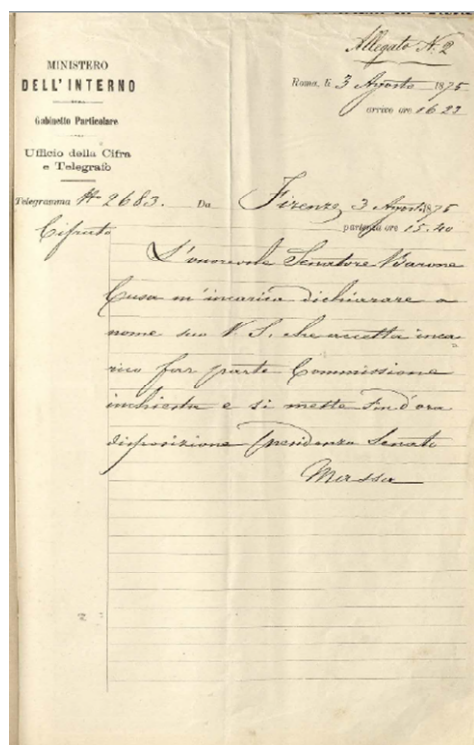 Allegato N. 2
MINISTERO
DELL'INTERNO
Gabinetto Particolare
Ufficio della Cifra
e Telegrafo
Roma, li 3 Agosto 1875
arrivo ore 16.23
Telegramma N 2683. Da Firenze, 3 Agosto 1875
partenza ore 15.40
Cifrato
L'onorevole Senatore Barone
Cusa m'incarica dichiarare a
nome suo V. S. che accetta inca-
rico far parte Commissione
inchiesta e si mette fin d'ora
disposizione Presidenza Senato
Massa